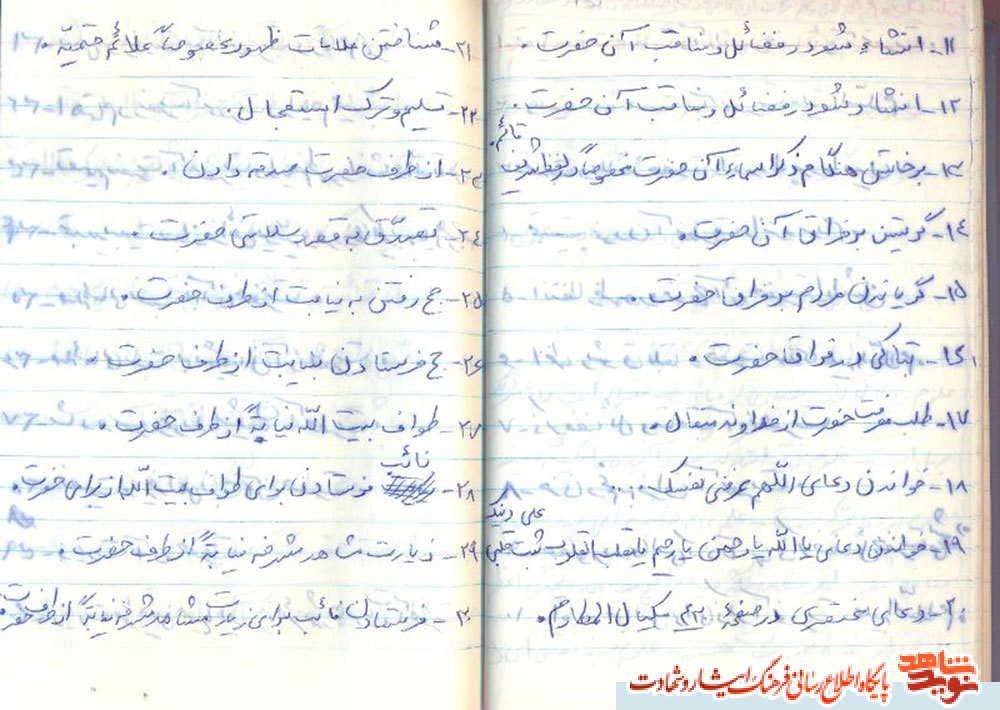 ۱۱- انشاء شعر در فضائل و مناقب آن حضرت.
۱۲- انشاد شعر در فضائل و مناقب آن حضرت.
۱۳- برخاستن هنگام ذکر اسماء آن حضرت مخصوصاً در لفظ شریف قائم
۱٤- گریستن بر فراق آن حضرت.
۱۵- گریاندن مردم بر فراق حضرت.
۱٦- تباکی در فراق حضرت.
۱۷- طلب معرفت حضرت از خداوند متعال.
۱۸- خواندن دعای اللّهم عرفنی نفسک...
۱۹- خواندن دعای یا اللّه یا رحمن یا رحیم یا مقلب القلوب ثبت قلبی علی دینک
۲۰- دعای مختصری در صفحهٔ مکیال المکارم.
۲۱- شناختن علامات ظهور، خصوصاً علائم حتمیّه.
۲۲- تسلیم و ترک استعجال.
۲۳- از طرف حضرت صدقه دادن.
۲٤- تصدّق به قصد سلامتی حضرت.
۲۵- حج رفتن به نیابت از طرف حضرت.
۲٦- حج فرستادن به نیابت از طرف حضرت.
۲۷- طواف بیت اللّه نیابةً از طرف حضرت.
۲۸- نائب فرستادن برای طواف بیت اللّه از برای حضرت.
۲۹- زیارت مشاهد مشرفه نیابةً از طرف حضرت.
۳۰- فرستادن نائب برای زیارت مشاهد مشرفه نیابةً از طرف حضرت
نوید شاهد
پایگاه اطلاع رسانی فرهنگ ایثار و شهادت